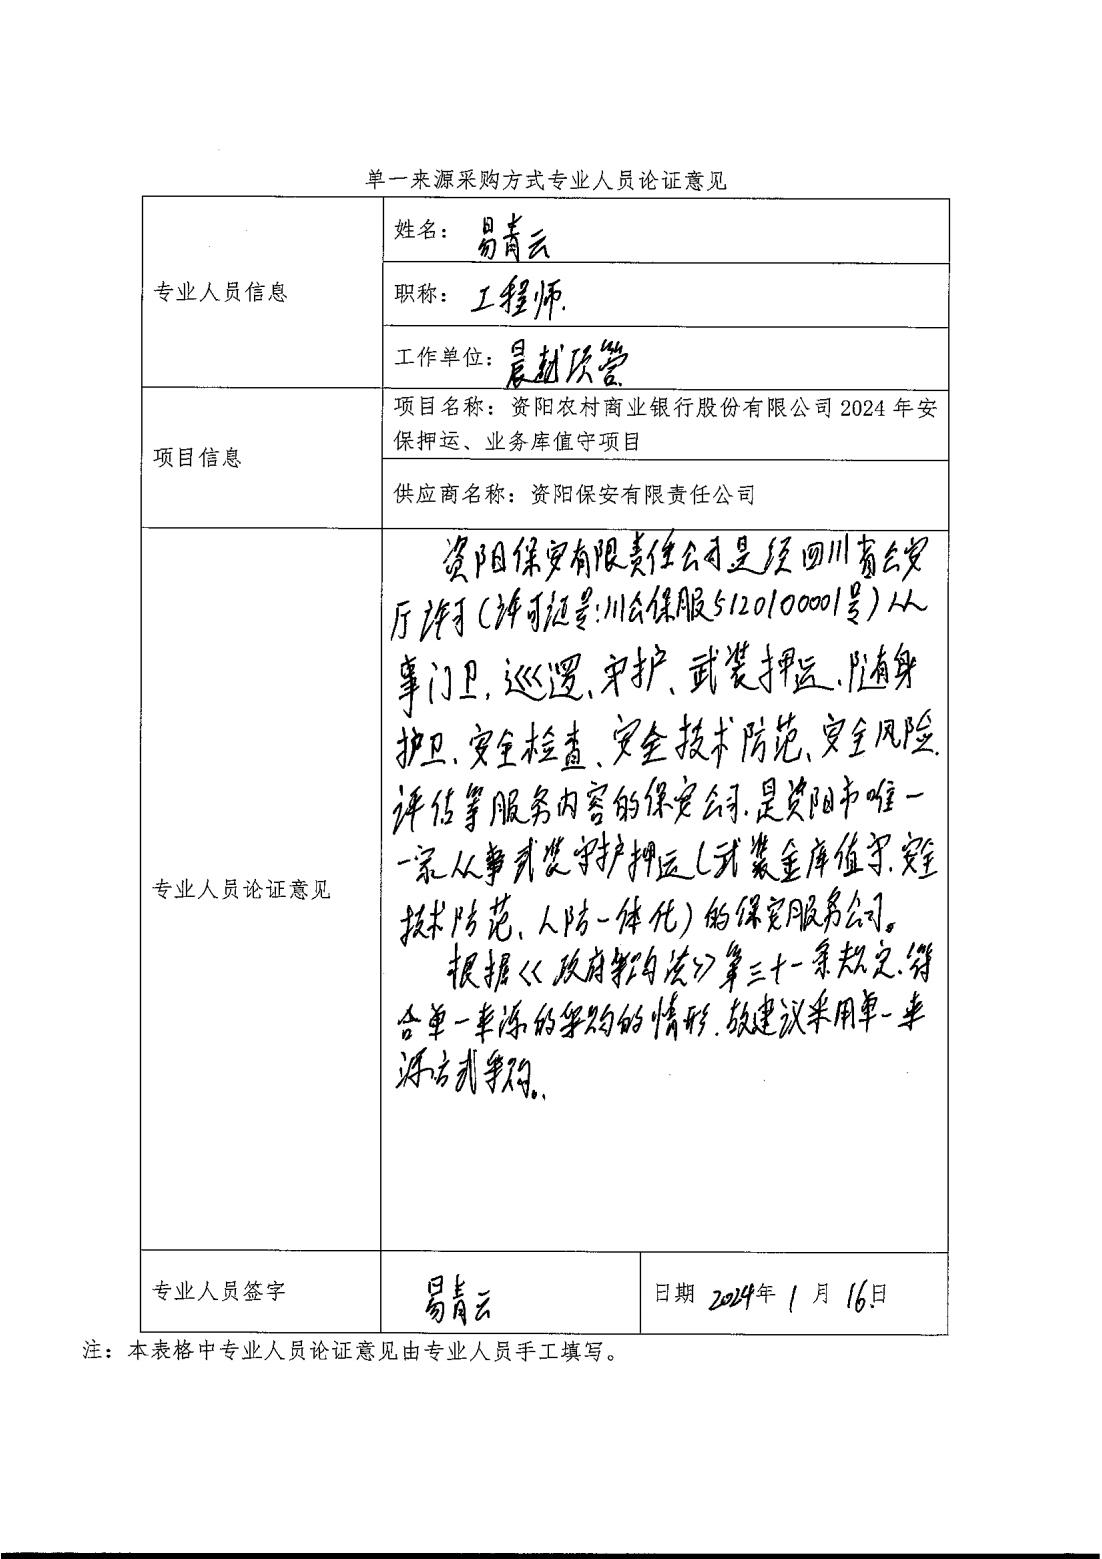 单一来源采购方式专业人员论证意见
专业人员信息
姓名：易青云
职称：工程师.
工作单位：晨越项管
项目信息
项目名称：资阳农村商业银行股份有限公司 2024 年安
保押运、业务库值守项目
供应商名称：资阳保安有限责任公司
专业人员论证意见
资阳保安有限责任公司是经四川省公安
厅许可（许可证号:川公保服5120100001号）从
事门卫、巡逻、守护、武装押运、随身
护卫、安全检查、安全技术防范、安全风险
评估等服务内容的保安公司.是资阳市唯一
一家从事武装守护押运（武装金库值守、安全
技术防范、人防一体化）的保安服务公司。
根据《政府采购法》第三十一条规定.符
合单一来源的采购的情形.故建议采用单一来
源方式采购。
专业人员签字
易青云
日期 2024年 1 月 16日
注：本表格中专业人员论证意见由专业人员手工填写。